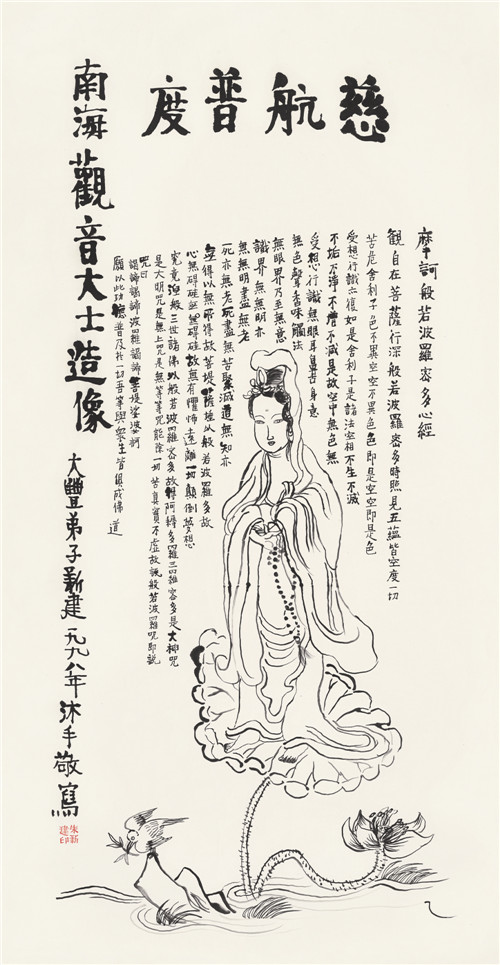 慈航普度
摩訶般若波羅密多心經
觀自在菩薩行深般若波羅密多時照見五蘊皆空度一切
苦厄舍利子色不異空空不異色色即是空空即是色
受想行識亦復如是舍利子是諸法空相不生不滅
不垢不淨不增不減是故空中無色無
受想行識無眼耳鼻舌身意
無色聲香味觸法
無眼界乃至無意
識界無無明亦
無無明盡無老
死亦無老死盡無苦集滅道無知亦
無得以無所得故菩提薩埵以般若波羅多故
心無碍無碍故無有懼怖遠離一切顛倒夢想
究竟涅般三世諸佛以般若波羅密多故得阿縟多羅三密多是大神咒
是大明咒是無上咒是無等等咒能除一切苦真實不虛故說般若波羅咒即說
咒曰
揭諦揭諦波羅揭諦菩提娑婆訶
願以此功德普及於一切吾等與衆生皆俱成佛道
南海觀音大士造像
大豐弟子新建一九九八年沐手敬寫
朱新建印